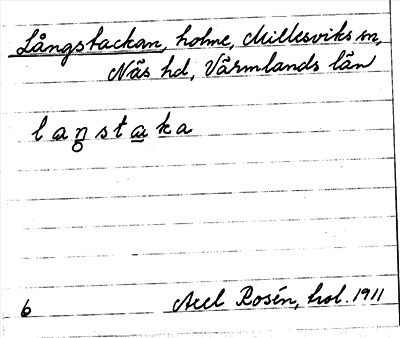 Långstackan, holme, Millesviks sn,
Näs hd, Värmlands län
l a ŋ s t a k a
6
Axel Rosén, hol. 1911